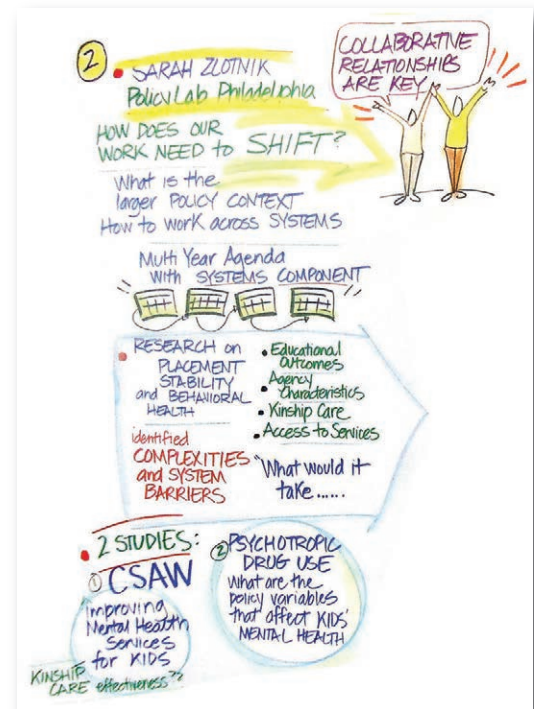 2
SARAH ZLOTNIK
PolicyLab Philadelphia
COLLABORATIVE
RELATIONSHIPS
ARE KEY
HOW DOES OUR
WORK NEED to SHIFT?
What is the
larger POLICY CONTEXT
How to work across SYSTEMS
Multi Year Agenda
with SYSTEMS COMPONENT
RESEARCH on
PLACEMENT
STABILITY
and BEHAVIORAL
HEALTH
identified
COMPLEXITIES
and SYSTEM
BARRIERS
Educational
Outcomes
Agency
Characteristics
Kinship Care
Access to Services
"What would it
take......
2 STUDIES:
① CSAW
Improving
Mental Health
Services
for KIDS
KINSHIP
CARE effectiveness??
② PSYCHOTROPIC
DRUG USE
What are the
policy variables
that affect KIDS'
MENTAL HEALTH